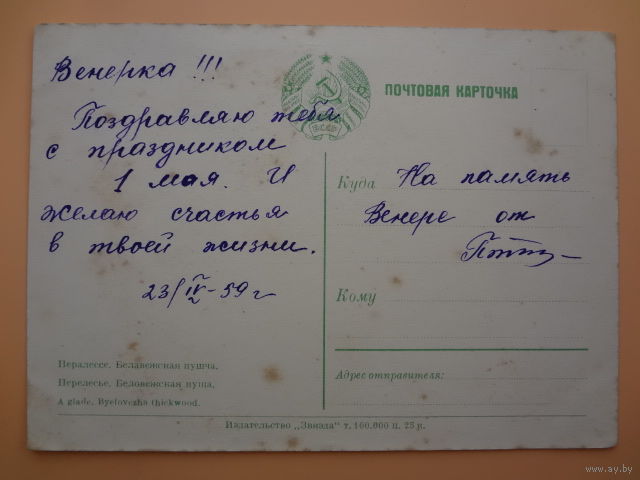 Венерка !!!
Поздравляю тебя
с праздником
1 мая. И
желаю счастья
в твоей жизни.
23/IV-59 г
Пералессе. Белавежская пушча.
Перелесье. Беловежская пуща.
A glade. Byelovezha thickwood.
ПОЧТОВАЯ КАРТОЧКА
Куда На память
Венере от
Кому
Адрес отправителя:
Издательство „Звязда" т. 100.000 ц. 25 к.
www.ay.by